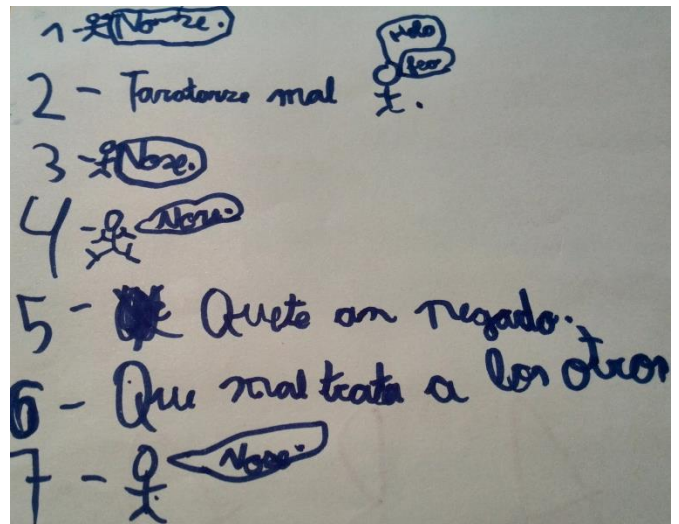 1 - Nose.
2 - Taratarze mal Malo feo.
3 - Nose.
4 - Nose.
5 - Quete an negado.
6 - Que mal trata a los otros
7 - Nose.